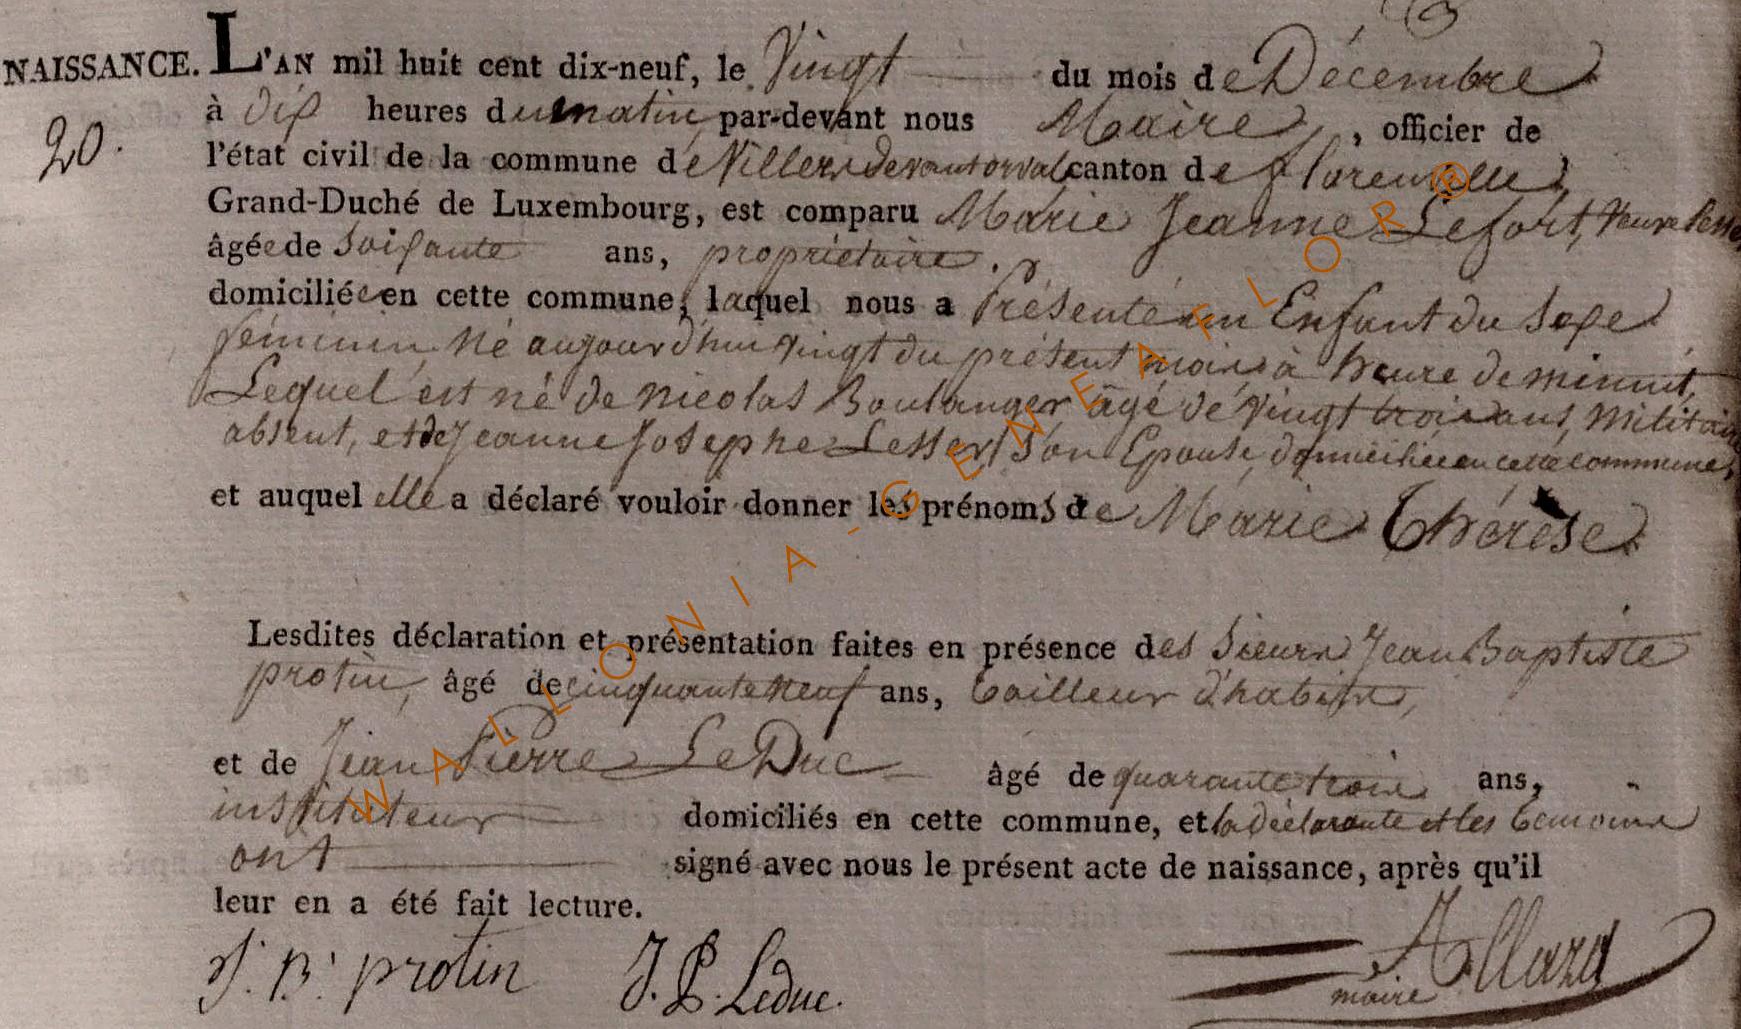 NAISSANCE. L'AN mil huit cent dix-neuf, le Vingt du mois de Décembre
20.
à dix heures du matin, par-devant nous Maire, officier de
l'état civil de la commune de Villers devant orval canton de florenville,
Grand-Duché de Luxembourg, est comparu Marie Jeanne Lefort, Veuve
âgée de Soixante ans, propriétaire.
domiciliée en cette commune, laquel nous a Présenté un Enfant du Sexe
féminin né aujourd'hui vingt du présent mois à heure de minuit,
Lequel est né de Nicolas Boulanger âgé de Vingt trois ans, Militaire
absent, et de Jeanne Josephe Lesser Son Epouse, domiciliée en cette commune,
et auquel elle a déclaré vouloir donner les prénoms de Marie Thérèse
Lesdites déclaration et présentation faites en présence des Sieurs Jean Baptiste
protin, âgé de cinquante neuf ans, tailleur d'habits,
et de Jean Pierre Le Duc âgé de quarante trois ans,
instituteur domiciliés en cette commune, et la déclarante et les témoins
ont signé avec nous le présent acte de naissance, après qu'il
leur en a été fait lecture.
J. B. protin J. P. Leduc. Allard
maire
WALLONIA-GENEAFLOR®